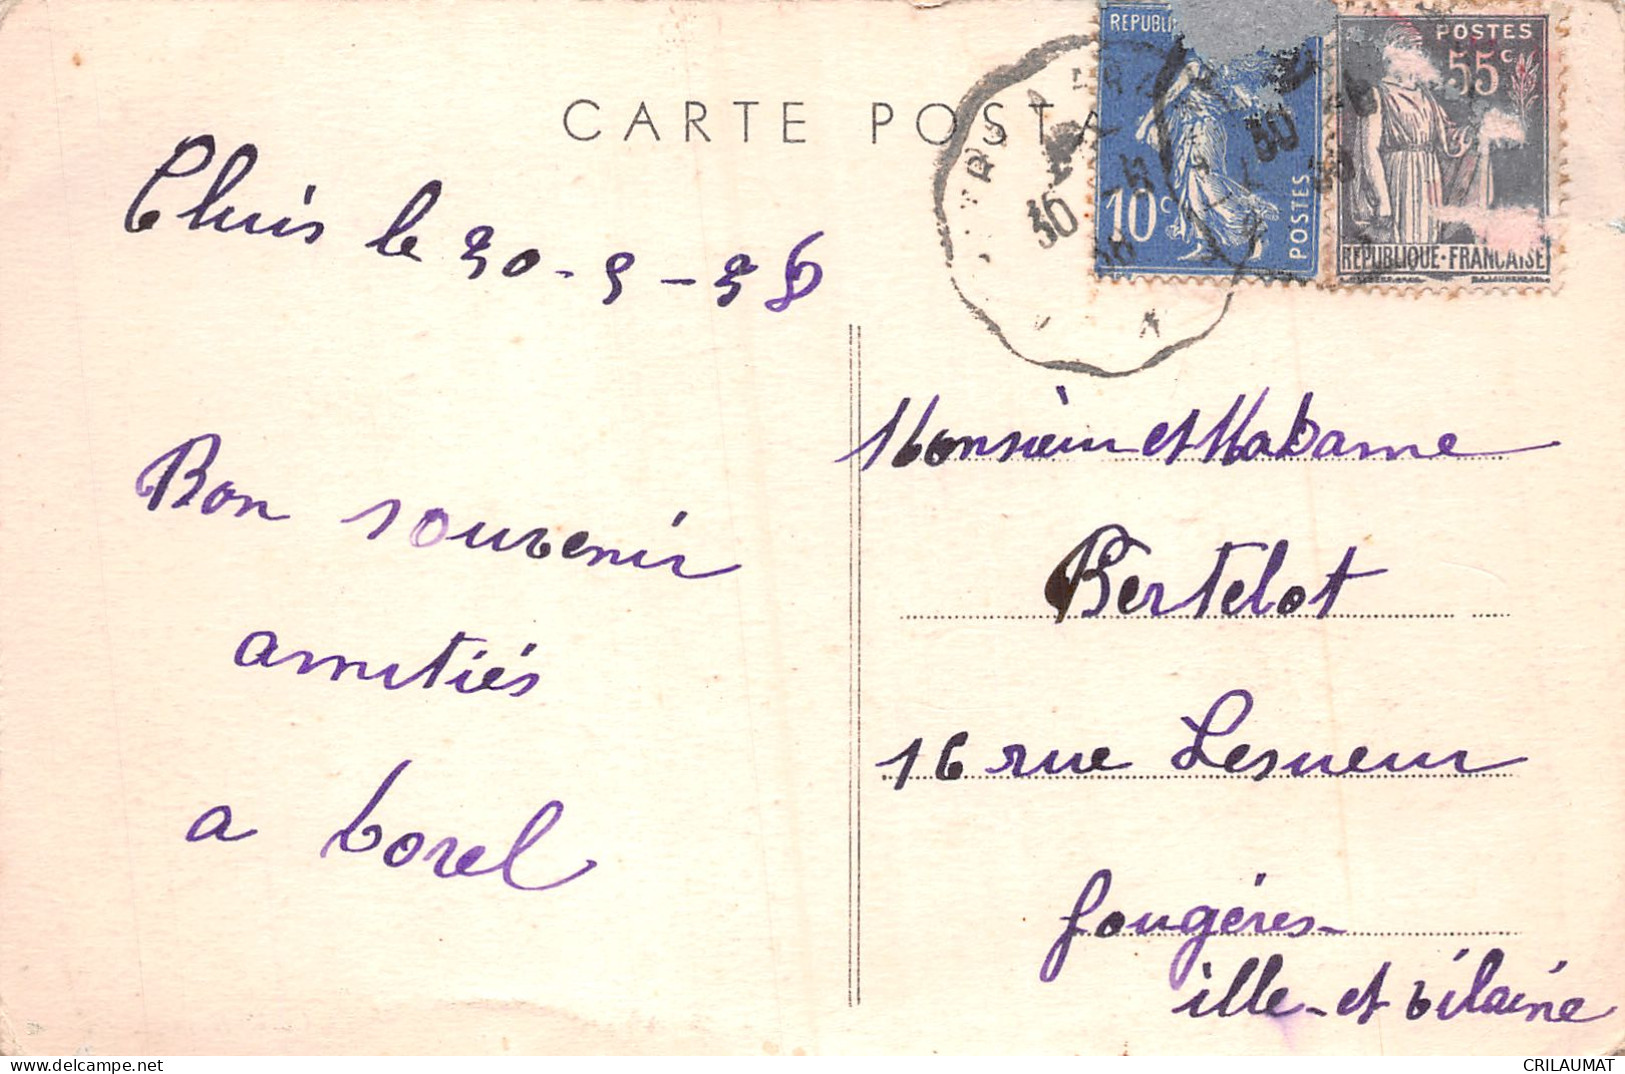 CARTE POSTA
REPUBLI
10c
POSTES
POSTES
55c
REPUBLIQUE·FRANÇAISE
30
Thuis le 30-5-36
Bon souvenir
amitiés
a borel
Monsieur et Madame
Bertelot
16 rue Lesueur
fougéres-
ille-et vilaine
CRILAUMAT